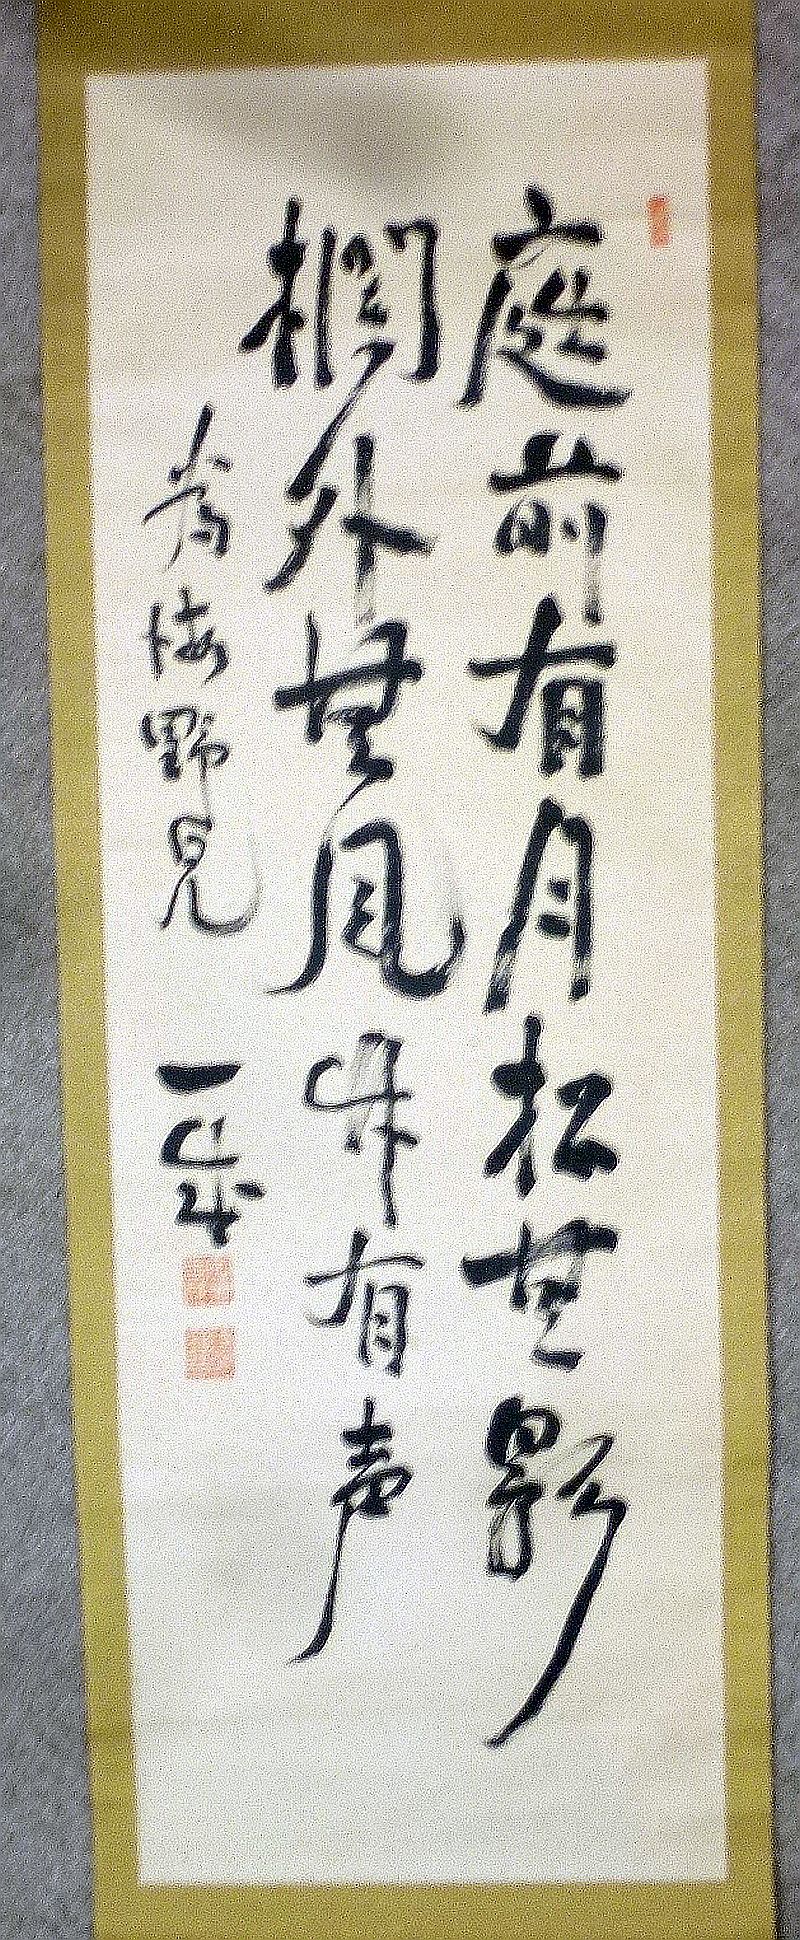 庭前有月松無影
欄外無風竹有声
為梅野兄
一